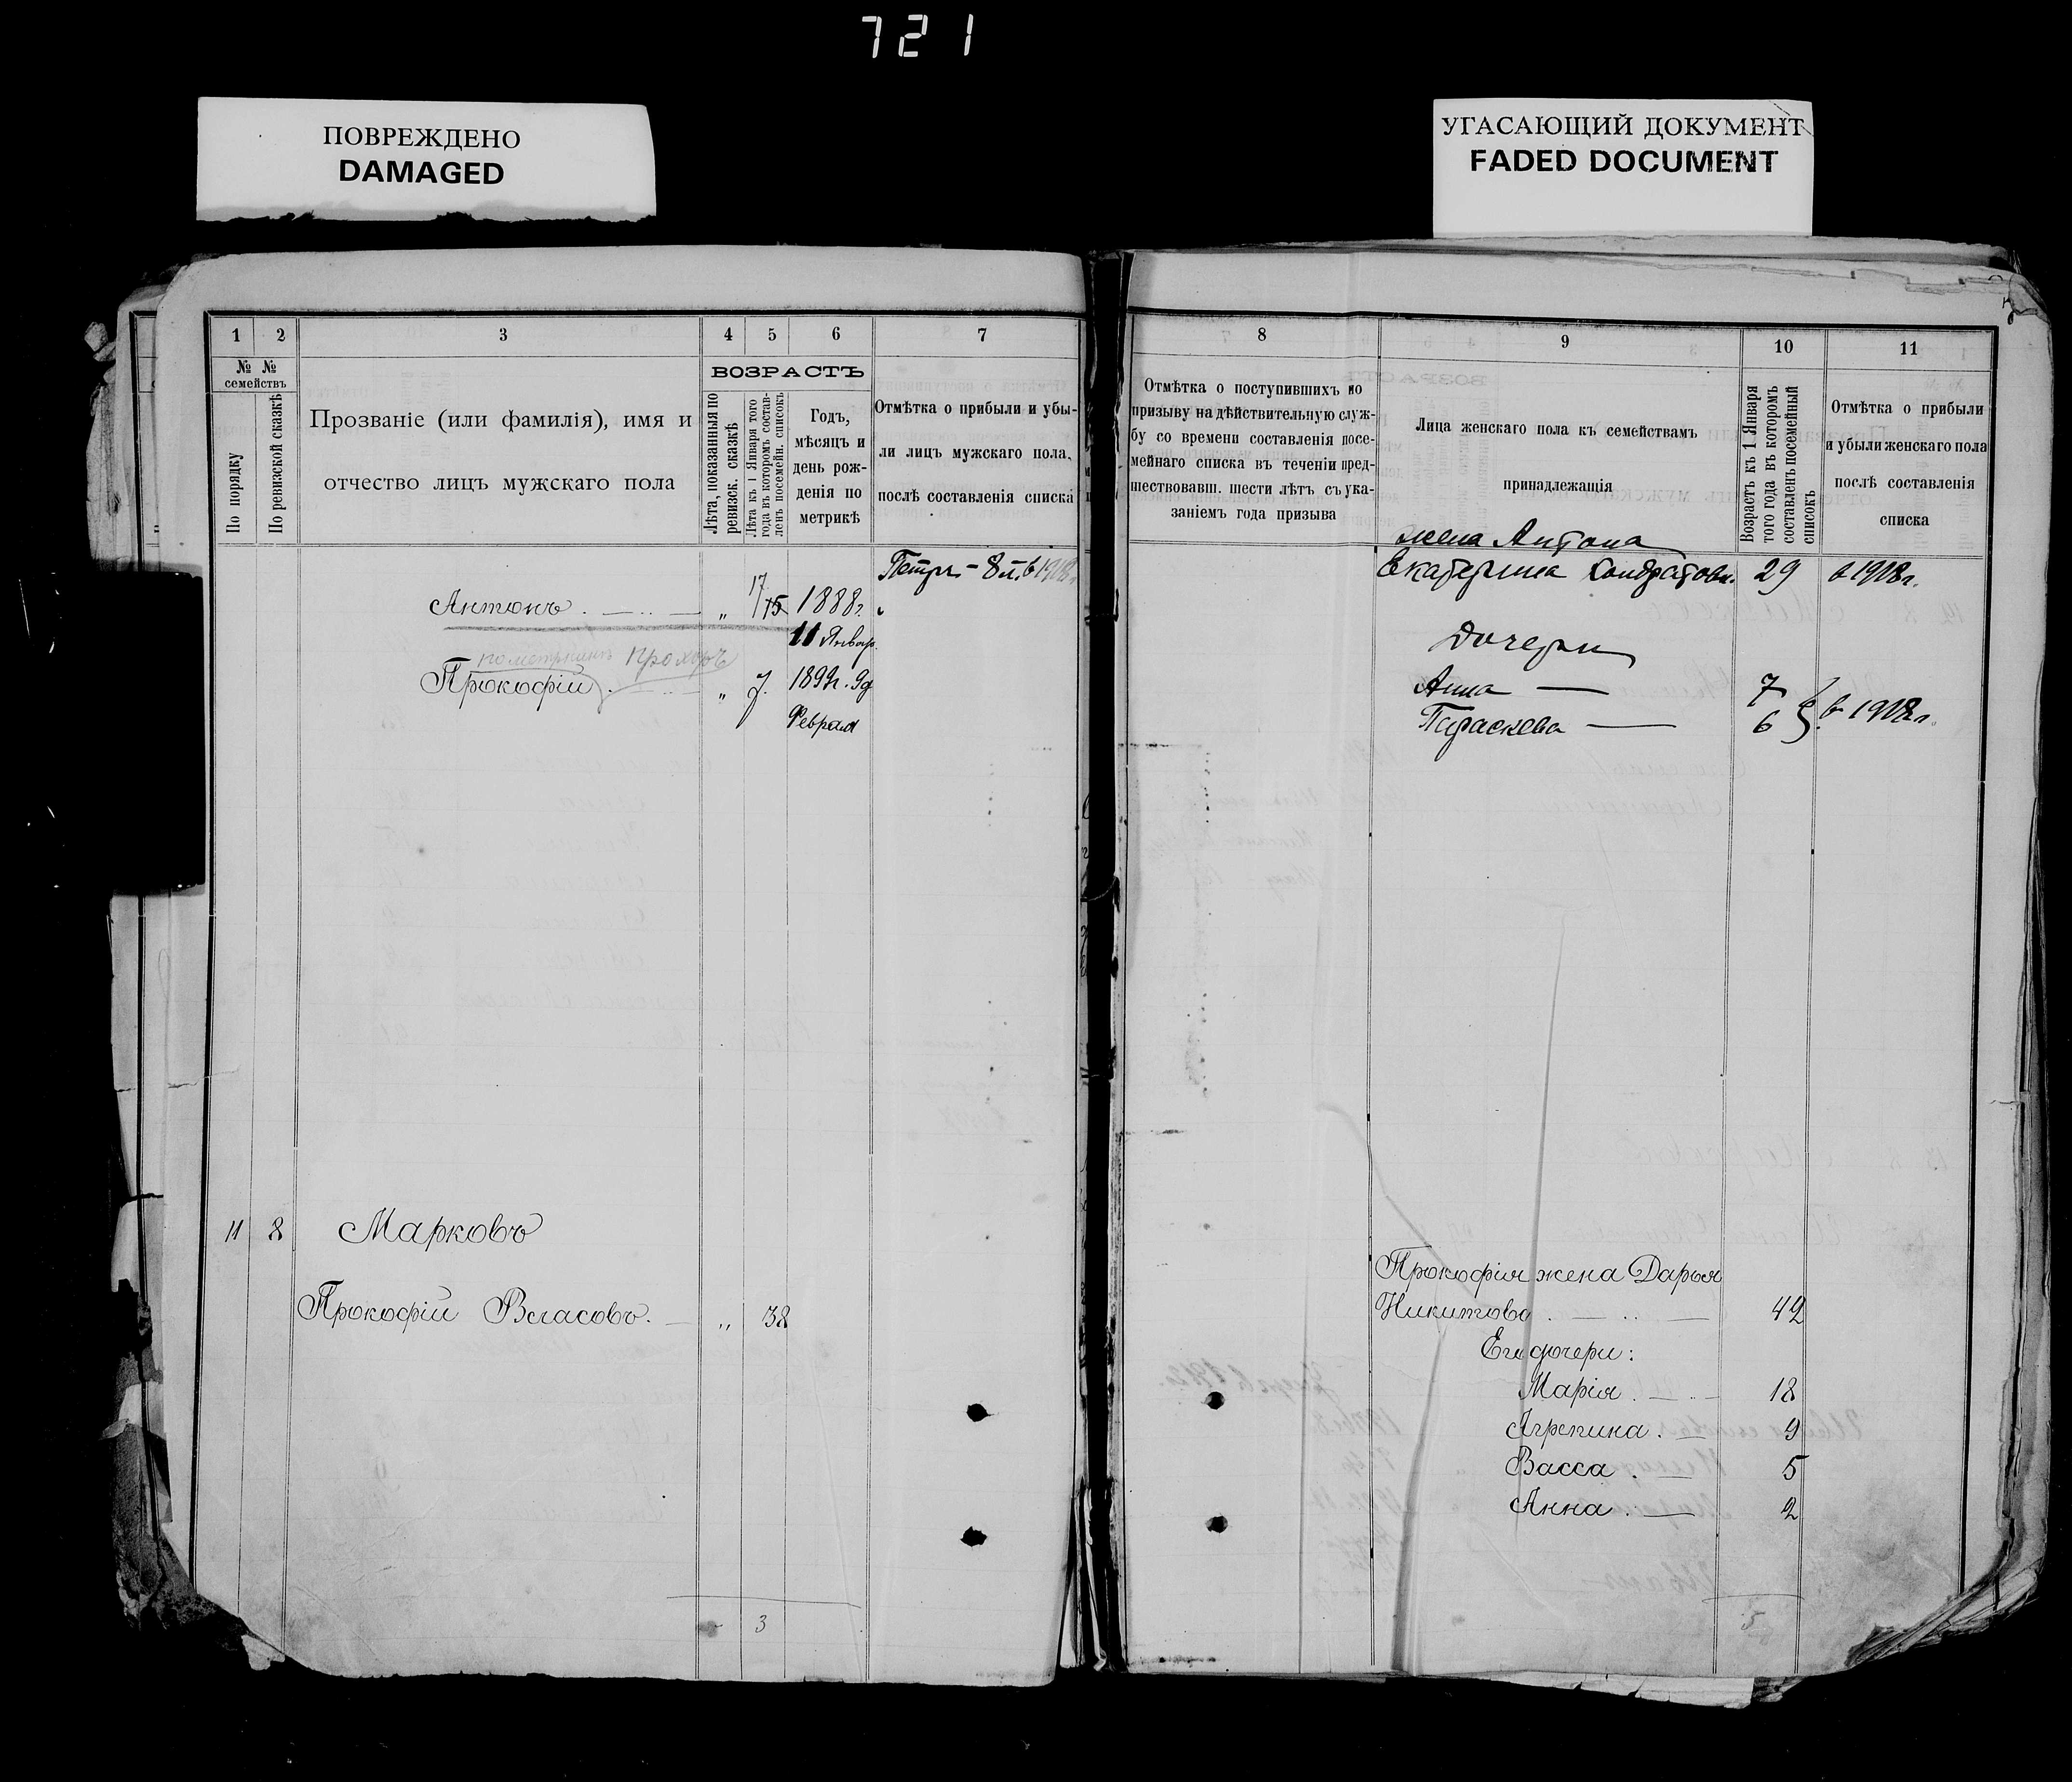 721
ПОВРЕЖДЕНО
DAMAGED
УГАСАЮЩИЙ ДОКУМЕНТ
FADED DOCUMENT
1 2 3 4 5 6 7
№ № семействъ
По порядку
По ревизской сказкѣ
Прозваніе (или фамилія), имя и
отчество лицъ мужскаго пола
ВОЗРАСТЪ
Лѣта, показанныя по
ревизск. сказкѣ
Лѣта къ 1 Января того
года въ которомъ состав-
ленъ посемейн. списокъ
Годъ,
мѣсяцъ и
день рож-
денія по
метрикѣ
Отмѣтка о прибыли и убы-
ли лицъ мужскаго пола,
послѣ составленія списка
Антонъ 17/15 1888г.
11 Январ.
Прохоръ
Прокофій " 7.
Февраля
11 8 Марковъ
Прокофій Власовъ. " 38
3
8 9 10 11
Отмѣтка о поступившихъ по
призыву на дѣйствительную служ-
бу со времени составленія посе-
мейнаго списка въ теченіи пред-
шествовавш. шести лѣтъ съ ука-
заніемъ года призыва
Лица женскаго пола къ семействамъ
принадлежащія
Возрастъ къ 1 Января
того года въ которомъ
составленъ посемейный
списокъ
Отмѣтка о прибыли
и убыли женскаго пола
послѣ составленія
списка
жена Антона
Екатерина Кондратова. 29 в 1918г.
Дочери
Анна — 7
Параскева — 6 в 1918г.
Прокофія жена Дарья
Никитова 42
Его дочери:
Марія. 18
Агрепина. 9
Васса. 5
Анна. 2
5